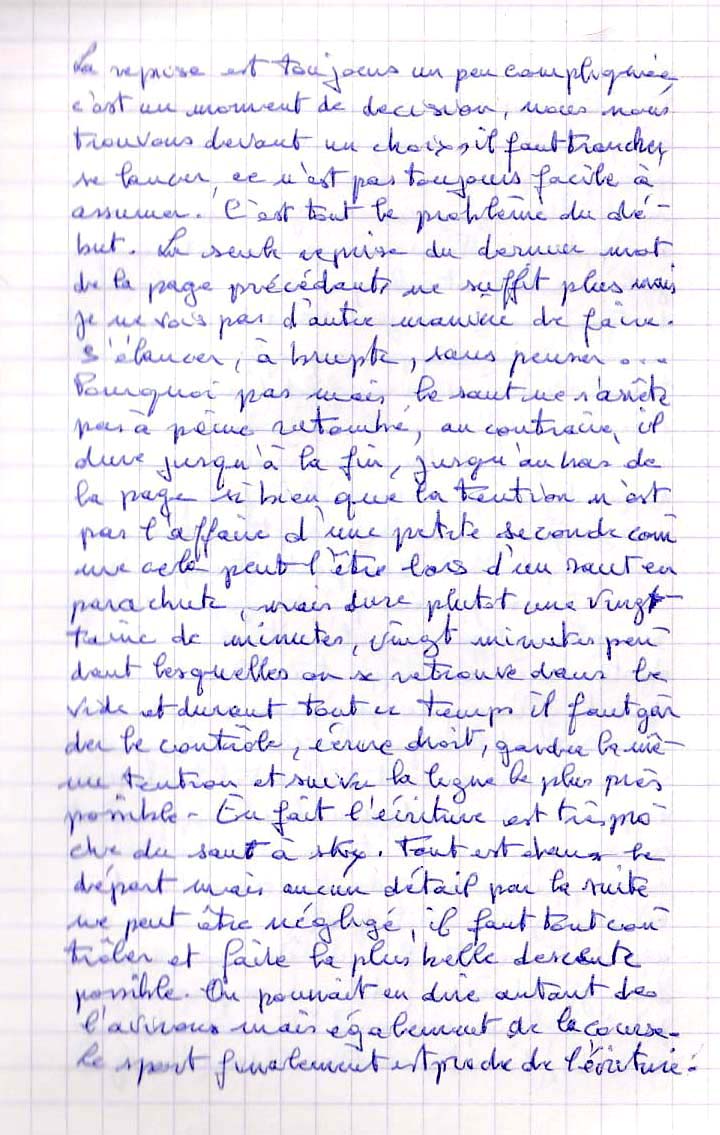 La reprise est toujours un peu compliquée,
c'est un moment de decision, nous nous
trouvons devant un choix, il faut trancher,
se lancer, ce n'est pas toujours facile à
assumer. C'est tout le problème du dé-
but. La seule reprise du dernier mot
de la page précédante ne suffit plus mais
je ne vois pas d'autre manière de faire.
S'élancer, à brupte, sans penser ...
Pourquoi pas mais le saut ne s'arrête
pas à peine retombé, au contraire, il
dure jusqu'à la fin, jusqu'au bas de
la page si bien que la tention n'est
pas l'affaire d'une petite seconde com
me cela peut l'être lors d'un saut en
parachute, mais dure plutot une vingt-
taine de minutes, vingt minutes pen
dant lesquelles on se retrouve dans le
vide et durant tout ce temps il faut gar
der le contrôle, écrire droit, garder la mê-
me tention et suivre la ligne le plus près
possible. En fait l'écriture est très pro
che du saut à sky. Tout est dans le
départ mais aucun détail par la suite
ne peut être négligé, il faut tout con
trôler et faire la plus belle descente
possible. On pourrait en dire autant de
l'avirons mais également de la course.
le sport finalement est proche de l'écriture.